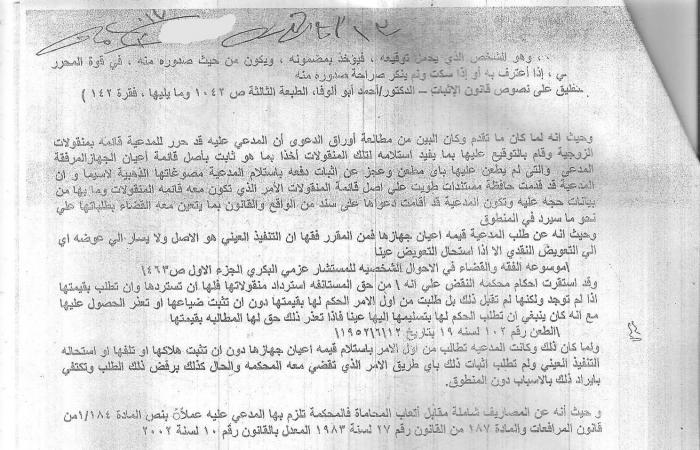 ، وهو الشخص الذي يحمل توقيعه ، فيؤخذ بمضمونه ، ويكون من حيث صدوره منه ، في قوة المحرر
ي ، إذا أعترف به أو إذا سكت ولم ينكر صراحة صدوره منه
تعليق على نصوص قانون الإثبات – الدكتور/أحمد أبو الوفاء الطبعة الثالثة ص ١٠٤٢ وما يليها ، فقرة ١٤٢ )
وحيث انه لما كان ما تقدم وكان البين من مطالعة أوراق الدعوى أن المدعي عليه قد حرر للمدعية قائمه بمنقولات
الزوجية وقام بالتوقيع عليها بما يفيد استلامه لتلك المنقولات أخذا بما هو ثابت بأصل قائمة أعيان الجهازالمرفقة
المدعى والتى لم يطعن عليها باى مطعن وعجز عن اثبات دفعه باستلام المدعية مصوغاتها الذهبية لاسيما و ان
المدعية قد قدمت حافظة مستندات طويت علي اصل قائمة المنقولات الأمر الذي تكون معه قائمه المنقولات وما بها من
بيانات حجه عليه وتكون المدعية قد أقامت دعواها على سند من الواقع والقانون بما يتعين معه القضاء بطلباتها علي
نحو ما سيرد في المنطوق
وحيث انه عن طلب المدعية قيمه اعيان جهازها فمن المقرر فقها ان التنفيذ العيني هو الاصل ولا يسار الي عوضه اي
الي التعويض النقدي الا اذا استحال التعويض عينا
\موسوعه الفقه والقضاء في الاحوال الشخصيه للمستشار عزمي البكري الجزء الاول ص٤٦٣\
وقد استقرت احكام محكمه النقض علي انه \ من حق المستانفه استرداد منقولاتها فلها ان تستردها وان تطلب بقيمتها
اذا لم توجد ولكنها لم تقبل ذلك بل طلبت من اول الامر الحكم لها بقيمتها دون ان تثبت ضياعها او تعذر الحصول عليها
مع انه كان ينبغي ان تطلب الحكم لها بتسليمها اليها عينا فاذا تعذر ذلك حق لها المطالبه بقيمتها
\الطعن رقم ١٠٢ لسنه ١٩ بتاريخ ١٩٥٢\٦\١٢\
ولما كان ذلك وكانت المدعيه تطالب من اول الامر باستلام قيمه اعيان جهازها دون ان تثبت هلاكها او تلفها او استحاله
التنفيذ العيني ولم تطلب اثبات ذلك باي طريق الامر الذي تقضي معه المحكمه والحال كذلك برفض ذلك الطلب وتكتفي
بايراد ذلك بالاسباب دون المنطوق.
و حيث أنه عن المصاريف شاملة مقابل أتعاب المحاماة فالمحكمة تلزم بها المدعي عليه عملاً بنص المادة ١/١٨٤من
قانون المرافعات والمادة ١٨٧ من القانون رقم ٢٧ لسنة ١٩٨٣ المعدل بالقانون رقم ١٠ لسنة ٢٠٠٢